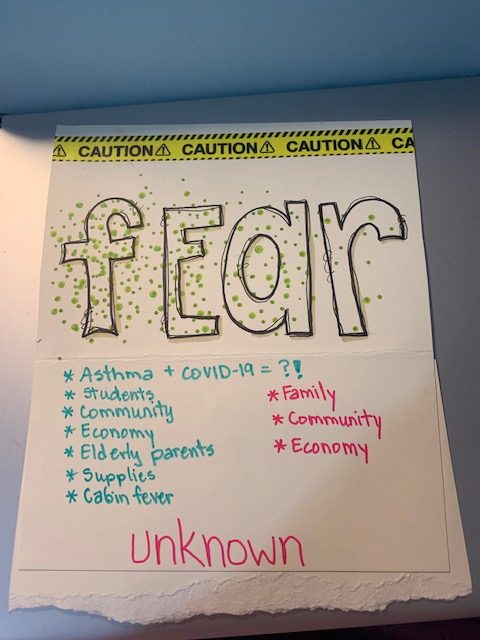 ⚠ CAUTION ⚠ CAUTION ⚠ CAUTION ⚠ CA
fEar
* Asthma + COVID-19 = ?!
* Students
* Community
* Economy
* Elderly parents
* Supplies
* Cabin fever
* Family
* Community
* Economy
unknown